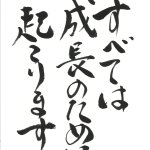 すべては
成長のため
起こります